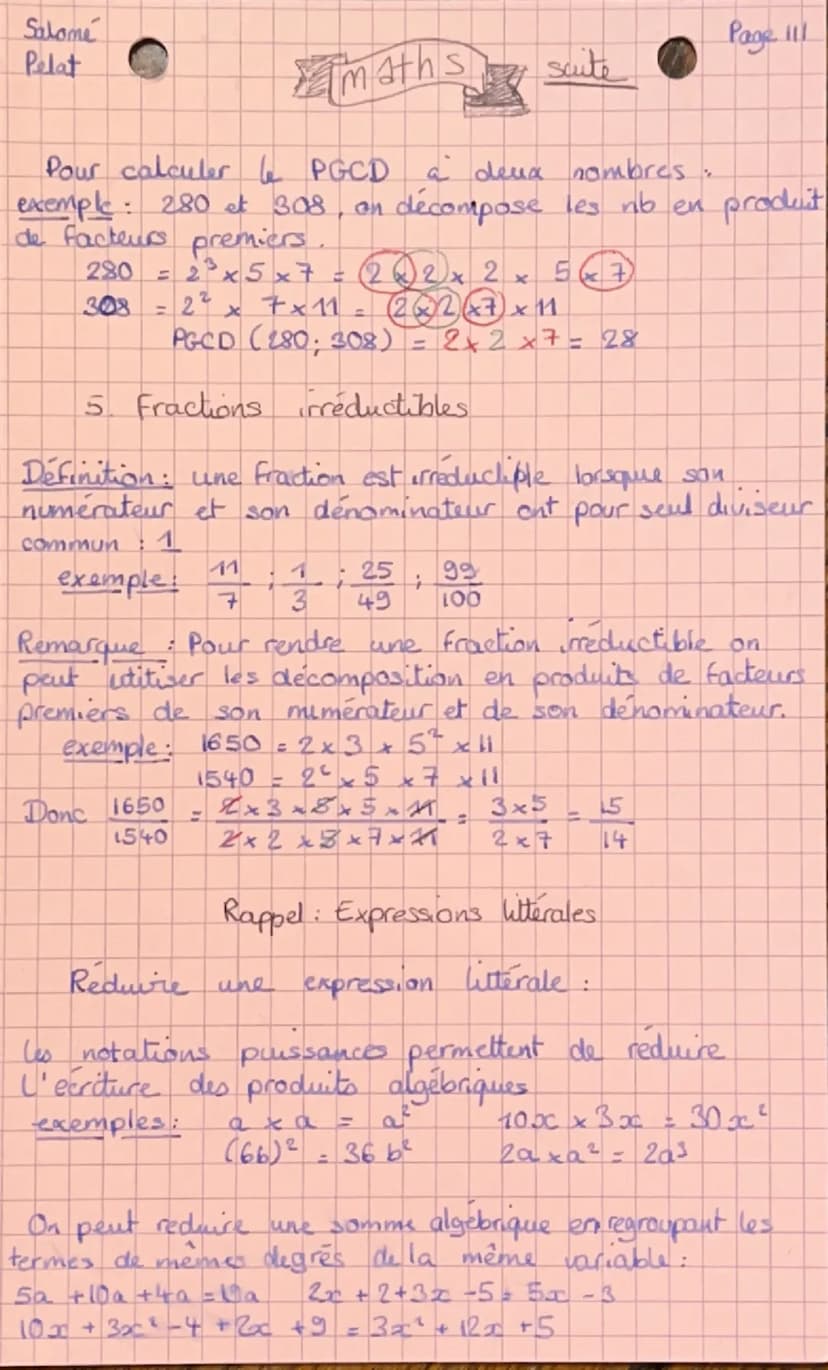 Salomé
Pelat
maths suite
Page 111
Pour calculer le PGCD à deux nombres :
exemple : 280 et 308, on décompose les nb en produit
de facteurs premiers.
280 = 2³ x 5 x 7 = 2 x 2 x 2 x 5 x 7
308 = 2² x 7 x 11 = 2 x 2 x 7 x 11
PGCD (280; 308) = 2 x 2 x 7 = 28
5. Fractions irréductibles
Définition : une fraction est irréductible lorsque son
numérateur et son dénominateur ont pour seul diviseur
commun : 1
exemple : 11/7 ; 1/3 ; 25/49 ; 99/100
Remarque : Pour rendre une fraction irréductible on
peut utitiser les décomposition en produits de facteurs
premiers de son numérateur et de son dénominateur.
exemple : 1650 = 2 x 3 x 5² x 11
1540 = 2² x 5 x 7 x 11
Donc 1650/1540 = 2 x 3 x 5 x 5 x 11 / 2 x 2 x 5 x 7 x 11 = 3 x 5 / 2 x 7 = 15/14
Rappel : Expressions littérales
Réduire une expression littérale :
Les notations puissances permettent de réduire
L'écriture des produits algébriques
exemples : a x a = a² 10x x 3x = 30x²
(6b)² = 36b² 2a x a² = 2a³
On peut réduire une somme algébrique en regroupant les
termes de mêmes degrés de la même variable :
5a + 10a + 4a = 19a 2x + 2 + 3x - 5 = 5x - 3
10x + 3x² - 4 + 2x + 9 = 3x² + 12x + 5